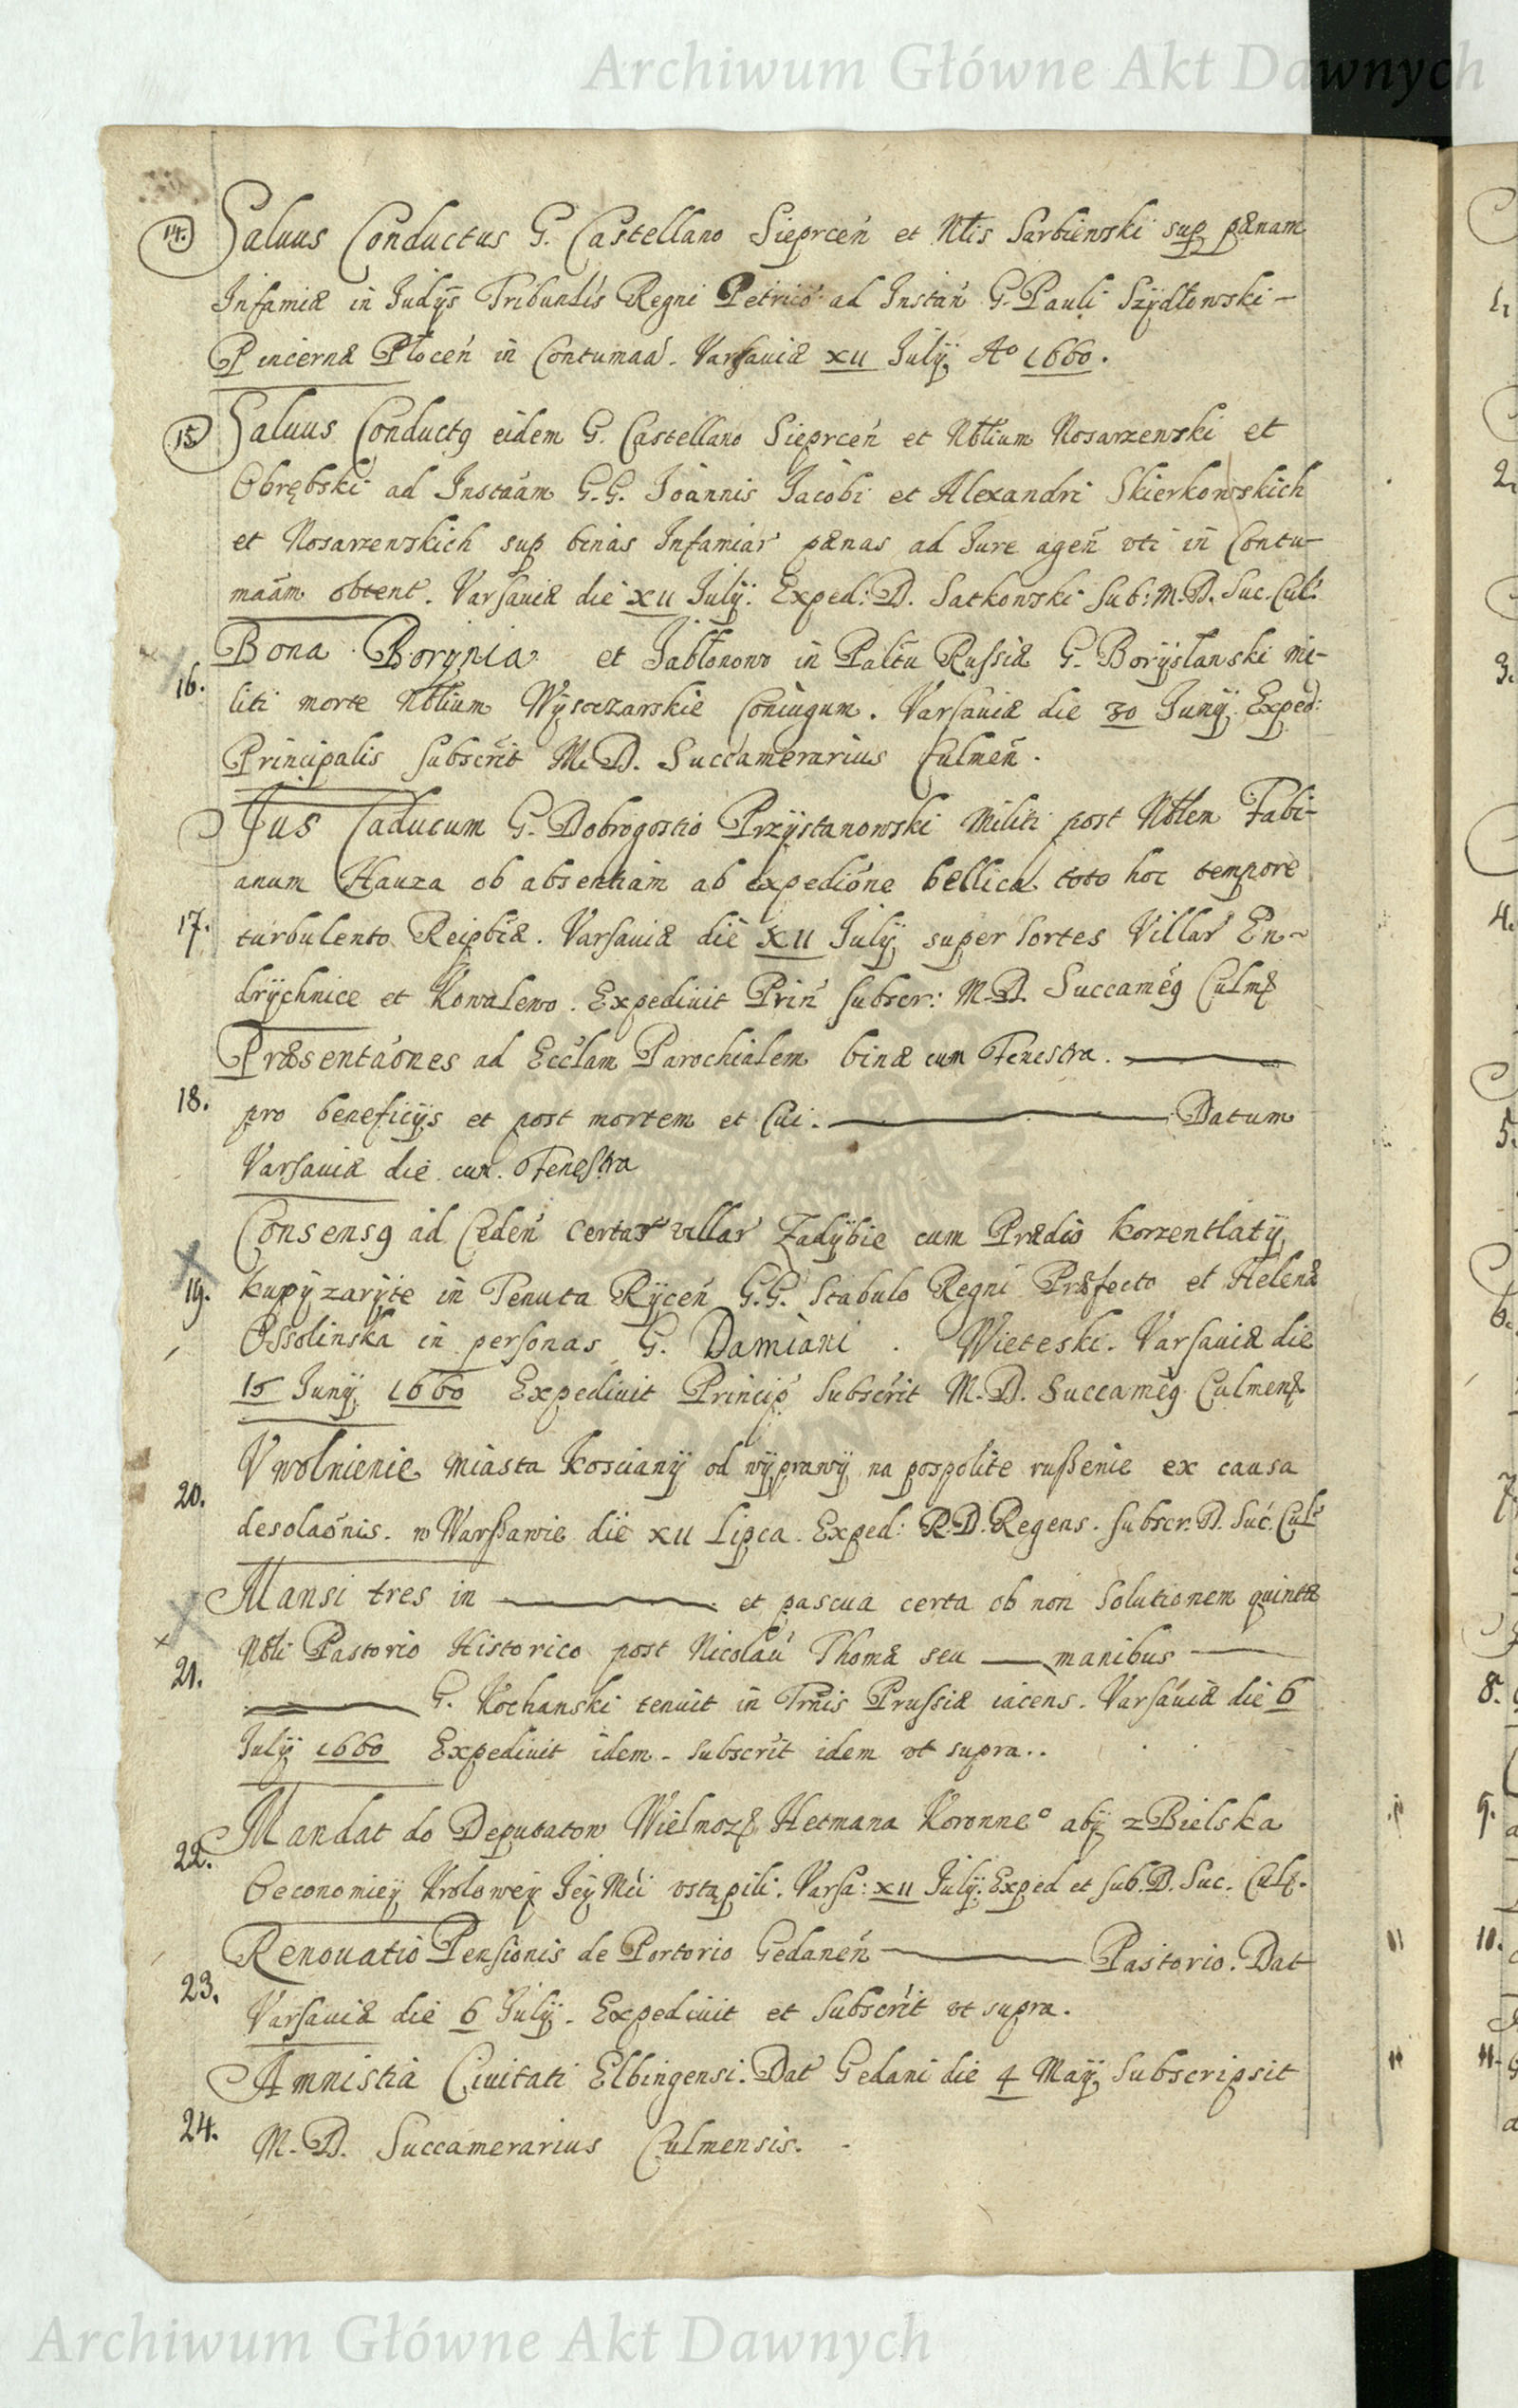 Archiwum Główne Akt Dawnych
14. Saluus Conductus G. Castellano Sieprceń et Nłis Sarbienski sup pænam
Infamiæ in Judÿs Tribunlis Regni Petrico ad Instań G. Pauli Szÿdłowski –
Pincernæ Płoceń in Contumaã. Varsauiæ XII Julÿ Ao 1660.
15. Saluus Conductꝯ eidem G. Castellano Sieprceń et Nblium Nosarzewski et
Obrębski ad Instãam G.G. Joannis Jacobi et Alexandri Skierkowskich
et Nosarzewskich sup binas Infamiar pænas ad Jure ageñ vti in Contu-
maãm obtent. Varsauiæ die XII Julÿ. Exped: D. Satkowski Sub: M.D. Suc. Cul:
16. Bona Borynia et Jabłonowo in Paltu Russiæ G. Borÿsławski mi-
liti morte Nblium Wÿsoczarskie Coniugum. Varsauiæ die 30 Junÿ. Exped:
Principalis subscrit M.D. Succamerarius Culmeñ.
Jus Caducum G. Dobrogostio Przÿstanowski Militi post Nblem Fabi-
anum Hauza ob absentiam ab expedione bellica toto hoc tempore
17. turbulento Reipbcæ. Varsauiæ die XII Julÿ super sortes Villar En-
drÿchnice et Kowalewo. Expediuit Prin subscr: M.D. Succameꝯ Culm
Præsentaones ad Ecclam Parochialem binæ cum Fenestra.
18. pro beneficÿs et post mortem et Cui. Datum
Varsauiæ die cum Fenestra
Consensꝯ ad Cedeń certar villar Zadÿbie cum Prædio Korzentlatÿ
19. Kupÿzarÿte in Tenuta Rÿceń G.G. Stabulo Regni Præfecto et Helenæ
Ossolinska in personas G. Damiani . Wieteski. Varsauiæ die
15 Junÿ 1660 Expediuit Princip subscrit M.D. Succameꝯ Culmen
Vwolnienie miasta Kosciany od wÿprawÿ na pospolite russenie ex causa
20. desolaonis. w Warssawie die XII Lipca. Exped: R.D. Regens. subscr. D. Suc. Cul:
Mansi tres in et pascua certa ob non solutionem quintæ
21. Nbli Pastorio Historico post Nicolaũ Thomæ seu manibus
G. Kochanski tenuit in Trnis Prussiæ iacens. Varsauiæ die 6
Julÿ 1660 Expediuit idem – subscrit idem vt supra..
Mandat do Deputatow Wielmoz Hetmana Koronneo abÿ z Bielska
22. Oeconomieÿ Krolowej Jeÿ Mci vstąpili. Varsa: XII Julÿ. Exped et sub. D. Suc. Cul.
Renouatio Pensionis de Portorio Gedaneń Pastorio. Dat
23. Varsauiæ die 6 Julÿ. Expediuit et subscrit vt supra.
Amnistia Ciuitati Elbingensi. Dat Gedani die 4 Maÿ subscripsit
24. M.D. Succamerarius Culmensis.
Archiwum Główne Akt Dawnych